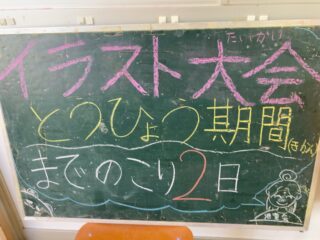 たいかい
イラスト大会
とうひょう期間
(きかん)
までのこり2日